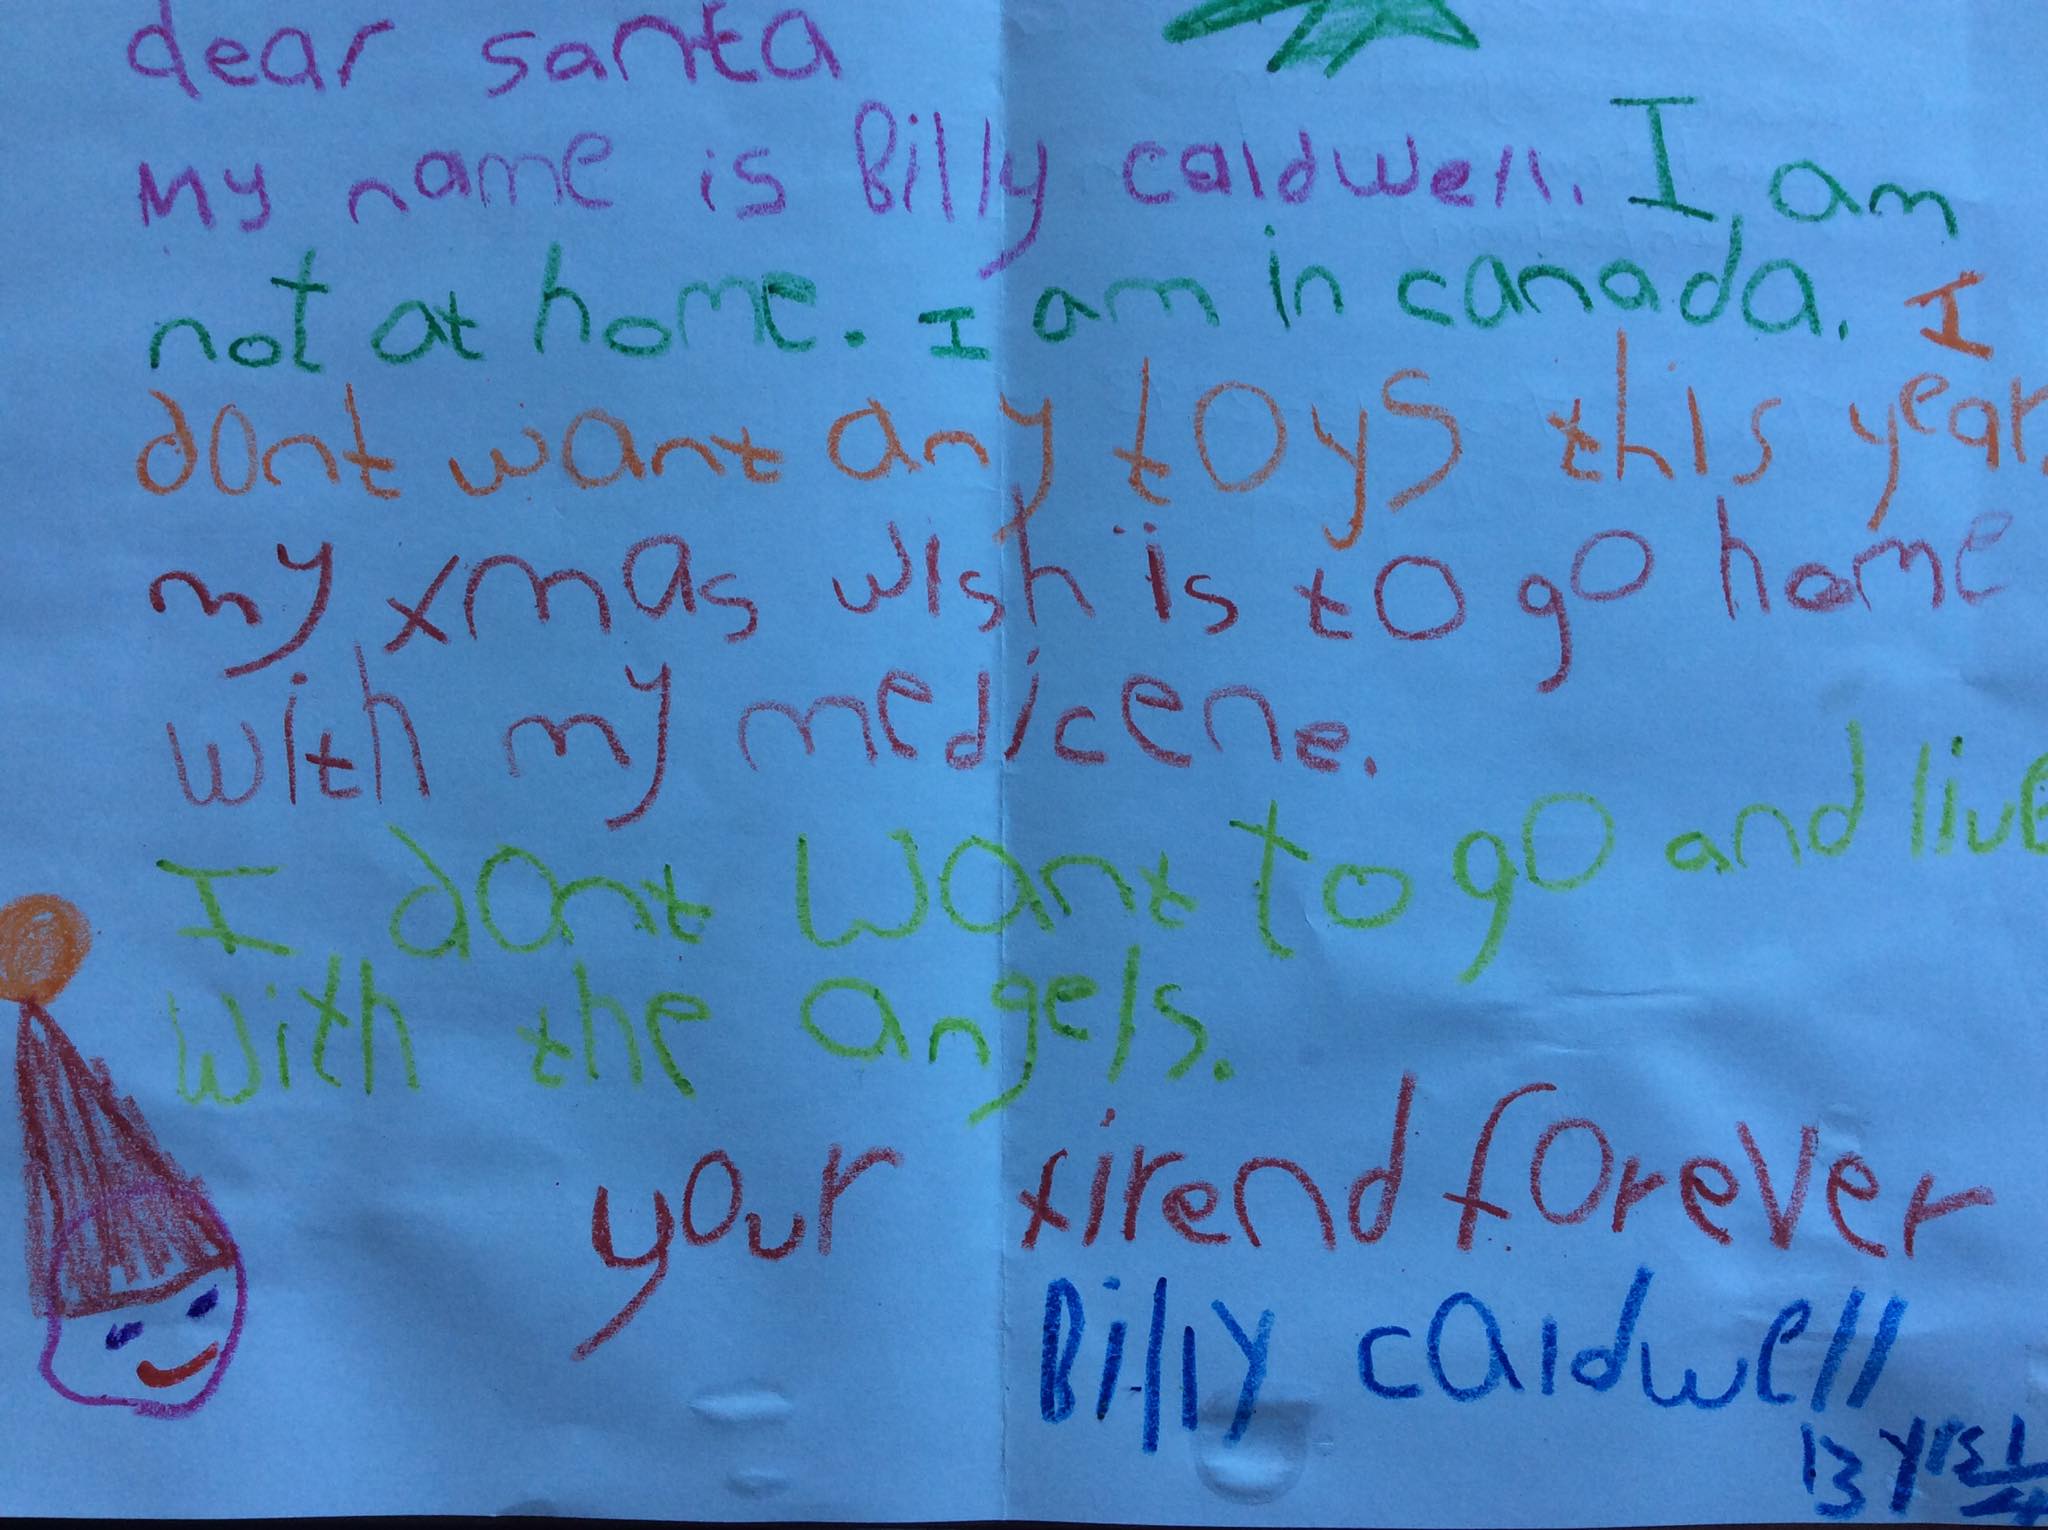 dear santa
My name is Billy caldwell. I am
not at home. I am in canada. I
dont want any toys this year.
my xmas wish is to go home
with my medicene.
I dont want to go and live
with the angels.
your firend forever
Billy caldwell
13 yrs 1/4